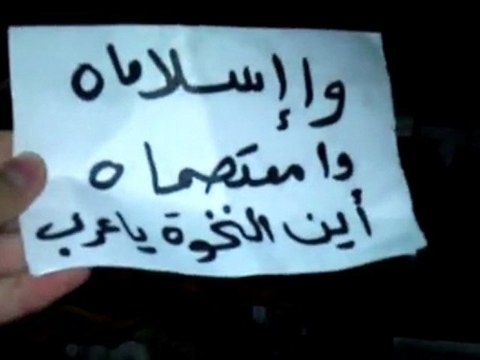 وا إسلاماه
وا معتصماه
أين النخوة يا عرب